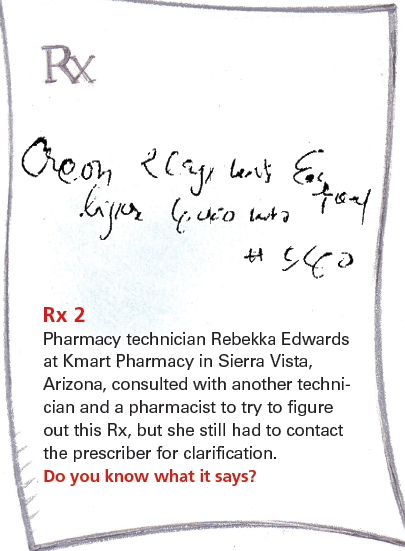 Rx
Creon 2 Caps
# 540
Rx 2
Pharmacy technician Rebekka Edwards
at Kmart Pharmacy in Sierra Vista,
Arizona, consulted with another techni-
cian and a pharmacist to try to figure
out this Rx, but she still had to contact
the prescriber for clarification.
Do you know what it says?